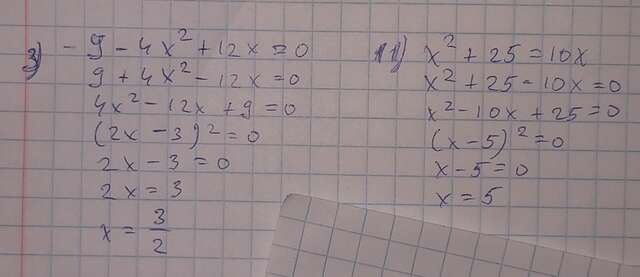 3) - 9 - 4x² + 12x = 0
9 + 4x² - 12x = 0
4x² - 12x + 9 = 0
(2x - 3)² = 0
2x - 3 = 0
2x = 3
x = 3/2
11) x² + 25 = 10x
x² + 25 - 10x = 0
x² - 10x + 25 = 0
(x - 5)² = 0
x - 5 = 0
x = 5